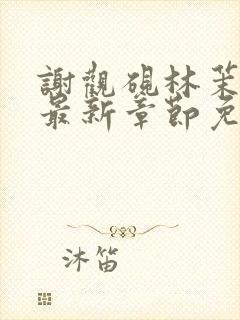 謝觀硯林茉
最新章節免
沐笛